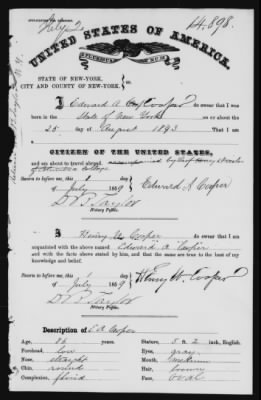 14.898.
UNITED STATES OF AMERICA.
STATE OF NEW-YORK,
CITY AND COUNTY OF NEW-YORK.
I Edward A Cooper do swear that I was
born in the State of New York on or about the
25 day of August 1843 that I am a
CITIZEN OF THE UNITED STATES,
and am about to travel abroad.
Sworn to before me, this 1 day
of July 1859 Edward A Cooper
D P Taylor
Notary Public.
I Henry W Cooper do swear that I am
acquainted with the above named Edward A Cooper and
with the facts above stated by him, and that the same are true to the best of my
knowledge and belief.
Sworn to before me, this 1 day
of July 1859 Henry W. Cooper
D P Taylor
Notary Public.
Description of E A Cooper
Age, 16 years Stature, 5 a 2 inch, English.
Forehead, low Eyes, gray
Nose, straight Mouth, medium
Chin, round Hair, brown
Complexion, florid Face, oval